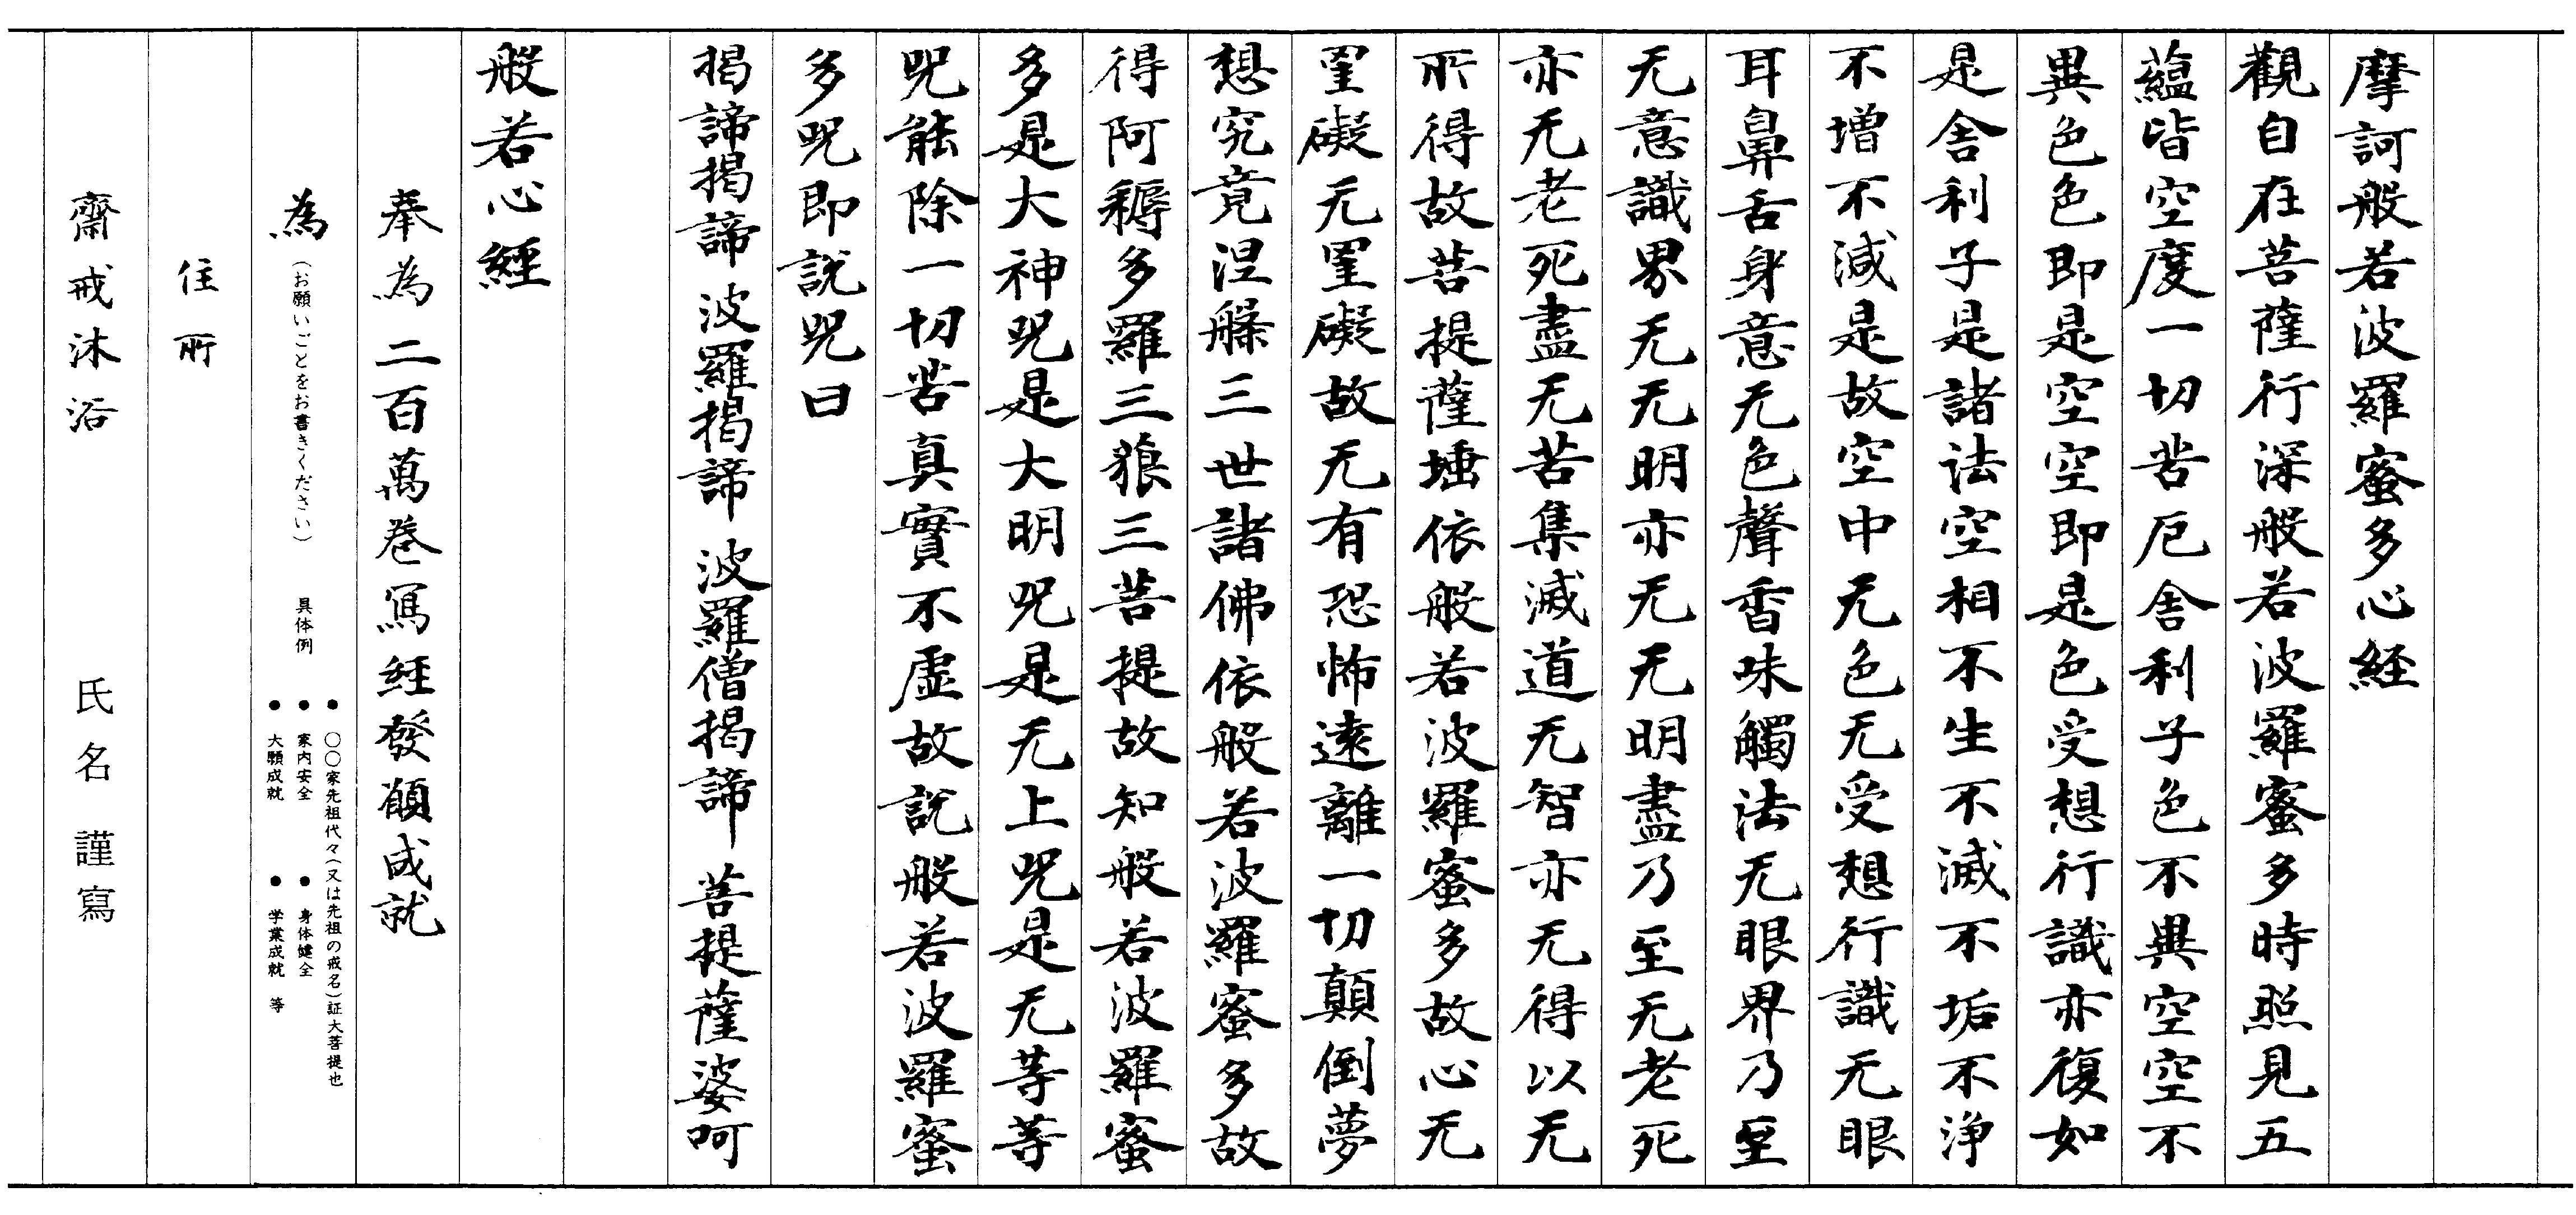 摩訶般若波羅蜜多心経
觀自在菩薩行深般若波羅蜜多時照見五
蘊皆空度一切苦厄舎利子色不異空空不
異色色即是空空即是色受想行識亦復如
是舎利子是諸法空相不生不滅不垢不浄
不増不減是故空中无色无受想行識无眼
耳鼻舌身意无色聲香味觸法无眼界乃至
无意識界无无明亦无无明盡乃至无老死
亦无老死盡无苦集滅道无智亦无得以无
所得故菩提薩埵依般若波羅蜜多故心无
罣礙无罣礙故无有恐怖遠離一切顛倒夢
想究竟涅槃三世諸佛依般若波羅蜜多故
得阿耨多羅三藐三菩提故知般若波羅蜜
多是大神呪是大明呪是无上呪是无等等
呪能除一切苦真實不虚故説般若波羅蜜
多呪即説呪曰
揭諦揭諦 波羅揭諦 波羅僧揭諦 菩提薩婆呵
般若心經
奉為二百萬巻写経發願成就
為 (お願いごとをお書きください) 具体例
● 〇〇家先祖代々(又は先祖の戒名)証大菩提也
● 家内安全 ● 身体健全
● 大願成就 ● 学業成就 等
住所
齋戒沐浴 氏名 謹寫